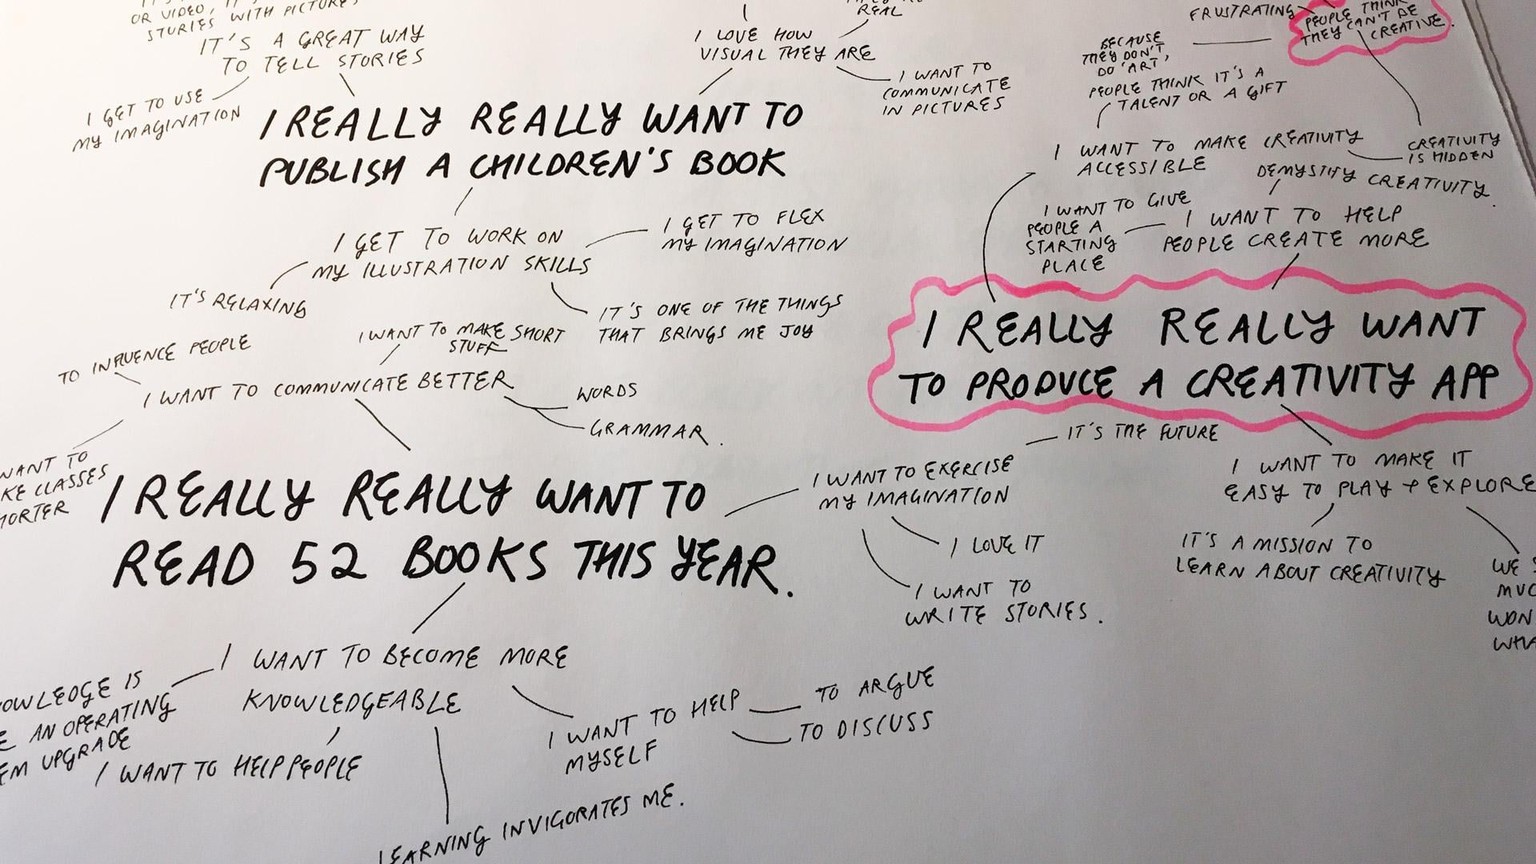 OR VIDEO, IT'S
STORIES WITH PICTURES
IT'S A GREAT WAY
TO TELL STORIES
I GET TO USE
MY IMAGINATION
I LOVE HOW
VISUAL THEY ARE
REAL
I WANT TO
COMMUNICATE
IN PICTURES
I REALLY REALLY WANT TO
PUBLISH A CHILDREN'S BOOK
I GET TO WORK ON
MY ILLUSTRATION SKILLS
I GET TO FLEX
MY IMAGINATION
IT'S RELAXING
IT'S ONE OF THE THINGS
THAT BRINGS ME JOY
I WANT TO MAKE SHORT
STUFF
TO INFLUENCE PEOPLE
I WANT TO COMMUNICATE BETTER
WORDS
GRAMMAR.
WANT TO
KE CLASSES
HORTER
I REALLY REALLY WANT TO
READ 52 BOOKS THIS YEAR.
I WANT TO EXERCISE
MY IMAGINATION
IT'S THE FUTURE
I LOVE IT
I WANT TO
WRITE STORIES.
I WANT TO BECOME MORE
KNOWLEDGEABLE
OWLEDGE IS
E AN OPERATING
EM UPGRADE
I WANT TO HELP PEOPLE
LEARNING INVIGORATES ME.
I WANT TO HELP
MYSELF
TO ARGUE
TO DISCUSS
FRUSTRATING
PEOPLE THINK
THEY CAN'T BE
CREATIVE.
BECAUSE
THEY DON'T
DO 'ART'
PEOPLE THINK IT'S A
TALENT OR A GIFT
I WANT TO MAKE CREATIVITY
ACCESSIBLE
CREATIVITY
IS HIDDEN
DEMYSTIFY CREATIVITY.
I WANT TO GIVE
PEOPLE A
STARTING
PLACE
I WANT TO HELP
PEOPLE CREATE MORE
I REALLY REALLY WANT
TO PRODUCE A CREATIVITY APP
I WANT TO MAKE IT
EASY TO PLAY + EXPLORE
IT'S A MISSION TO
LEARN ABOUT CREATIVITY
WE S
MUC
WON
WHA